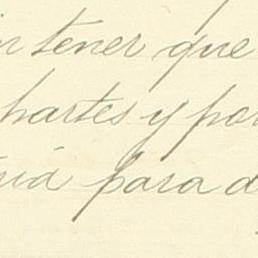 tener que
hartes y por
para d